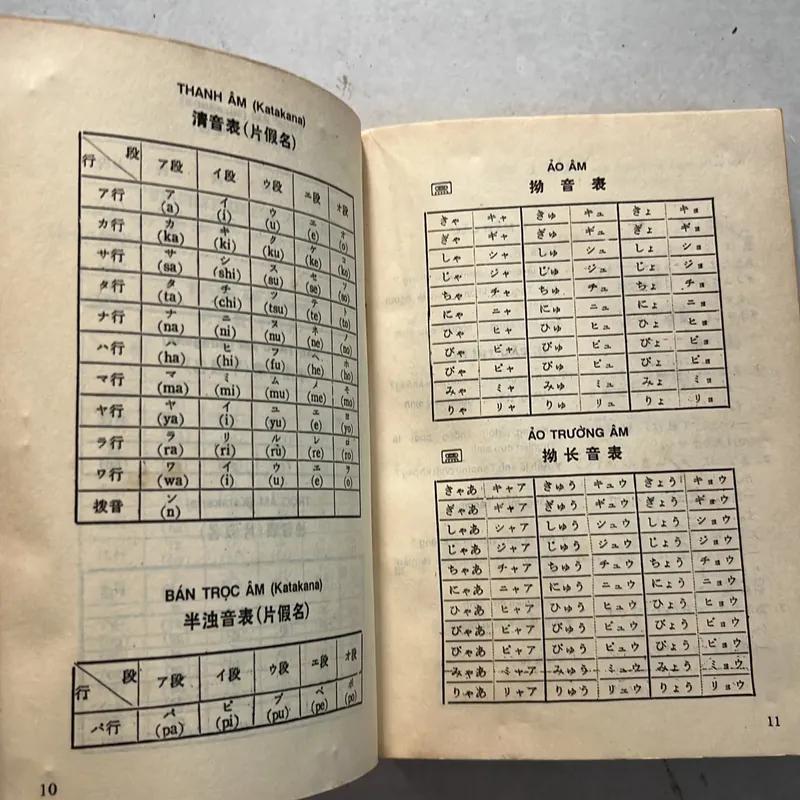 THANH ÂM (Katakana)
清音表(片假名)
行 段 ア段 イ段 ウ段 エ段 オ段
ア行 ア (a) イ (i) ウ (u) エ (e) オ (o)
カ行 カ (ka) キ (ki) ク (ku) ケ (ke) コ (ko)
サ行 サ (sa) シ (shi) ス (su) セ (se) ソ (so)
タ行 タ (ta) チ (chi) ツ (tsu) テ (te) ト (to)
ナ行 ナ (na) ニ (ni) ヌ (nu) ネ (ne) ノ (no)
ハ行 ハ (ha) ヒ (hi) フ (fu) ヘ (he) ホ (ho)
マ行 マ (ma) ミ (mi) ム (mu) メ (me) モ (mo)
ヤ行 ヤ (ya) イ (i) ユ (yu) エ (e) ヨ (yo)
ラ行 ラ (ra) リ (ri) ル (rù) レ (re) ロ (ro)
ワ行 ワ (wa) イ (i) ウ (u) エ (e) ヲ (o)
拨音 ン (n)
BÁN TRỌC ÂM (Katakana)
半浊音表(片假名)
行 段 ア段 イ段 ウ段 エ段 オ段
パ行 パ (pa) ピ (pi) プ (pu) ペ (pe) ポ (po)
10
ẢO ÂM
拗音表
きゃ キャ きゅ キュ きょ キョ
ぎゃ ギャ ぎゅ ギュ ぎょ ギョ
しゃ シャ しゅ シュ しょ ショ
じゃ ジャ じゅ ジュ じょ ジョ
ちゃ チャ ちゅ チュ ちょ チョ
にゃ ニャ にゅ ニュ にょ ニョ
ひゃ ヒャ ひゅ ヒュ ひょ ヒョ
びゃ ビャ びゅ ビュ びょ ビョ
ぴゃ ピャ ぴゅ ピュ ぴょ ピョ
みゃ ミャ みゅ ミュ みょ ミョ
りゃ リャ りゅ リュ りょ リョ
ẢO TRƯỜNG ÂM
拗长音表
きゃあ キャア きゅう キュウ きょう キョウ
ぎゃあ ギャア ぎゅう ギュウ ぎょう ギョウ
しゃあ シャア しゅう シュウ しょう ショウ
じゃあ ジャア じゅう ジュウ じょう ジョウ
ちゃあ チャア ちゅう チュウ ちょう チョウ
にゃあ ニャア にゅう ニュウ にょう ニョウ
ひゃあ ヒャア ひゅう ヒュウ ひょう ヒョウ
びゃあ ビャア びゅう ビュウ びょう ビョウ
ぴゃあ ピャア ぴゅう ピュウ ぴょう ピョウ
みゃあ ミャア みゅう ミュウ みょう ミョウ
りゃあ リャア りゅう リュウ りょう リョウ
11